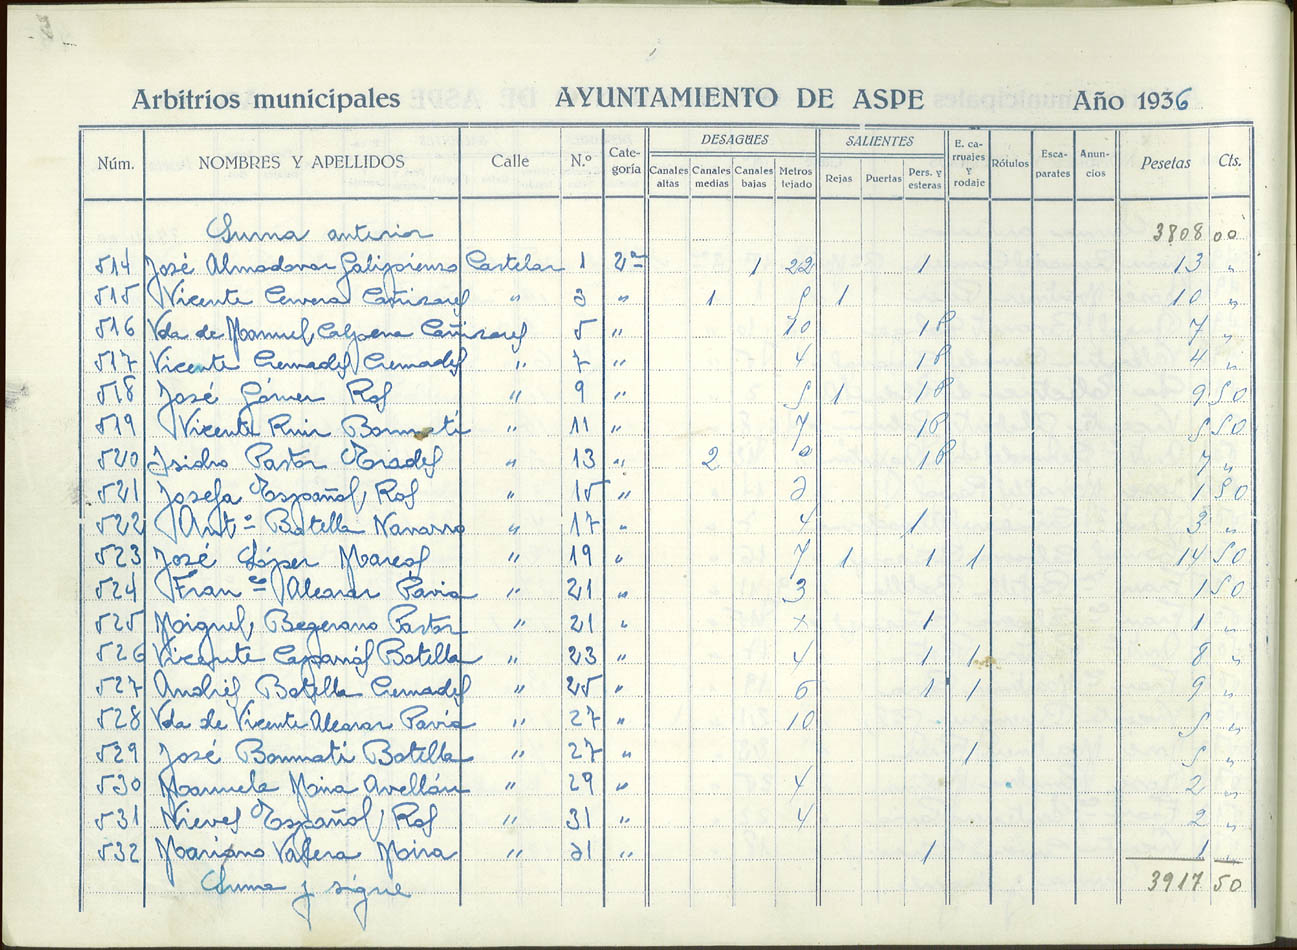 Arbitrios municipales AYUNTAMIENTO DE ASPE Año 1936
Núm. NOMBRES Y APELLIDOS Calle N.º Cate-goría DESAGÜES Canales altas Canales medias Canales bajas Metros tejado SALIENTES Rejas Puertas Pers. y esteras E. ca-rruajes y rodaje Rótulos Esca-parates Anun-cios Pesetas Cts.
Suma anterior 3808 00
514 José Almodovar Galipienso Castelar 1 2ª 1 22 1 13 "
515 Vicente Cervera Cañizares " 3 " 1 5 1 10 "
516 Vda de Manuel Calpena Cañizares 5 " 10 1P 7 "
517 Vicente Cremades Cremades " 7 " 4 1P 4 "
518 José Gómez Ros " 9 " 5 1 1P 9 50
519 Vicente Ruiz Bonmatí " 11 " 7 1P 5 50
520 Isidro Pastor " 13 " 2 1P 7 "
521 Josefa Español Ros " 15 " 1 50
522 Antº Botella Navarro " 17 " 4 1 3 "
523 José López Marcos " 19 " 7 1 1 1 14 50
524 Franco Alcaraz Pavia " 21 " 3 1 50
525 Miguel Begerano Pastor " 21 " x 1 1 "
526 Vicente Botella " 23 " 4 1 1 8 "
527 Andrés Botella Cremades " 25 " 6 1 1 9 "
528 Vda de Vicente Alcaraz Pavia " 27 " 10 5 "
529 José Bonmatí Botella " 27 " 1 5 "
530 Manuela Mira Avellán " 29 " 4 2 "
531 Nieves Español Ros " 31 " 4 2 "
532 Mariano Valera Mira " 31 " 1 1 "
Suma y sigue 3917 50